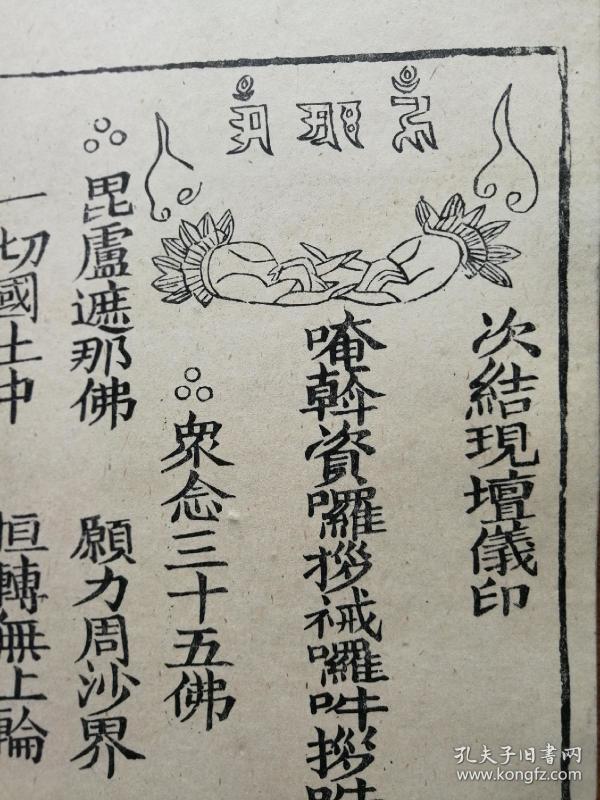 次結現壇儀印
唵斡資囉拶祴囉吽拶
眾念三十五佛
毘盧遮那佛 願力周沙界
一切國土中 恒轉無上輪
孔夫子旧书网
www.kongfz.com